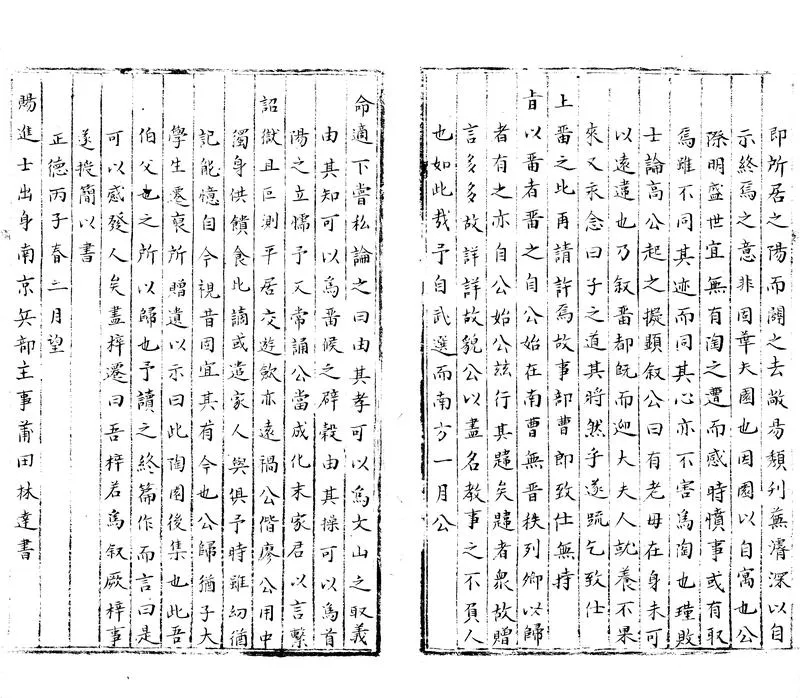 即所居之陽而闢之去敞易頽列蕪濬深以自
示終焉之意非固華夫園也因園以自寓也公
際明盛世宜無有陶之遭而感時憤事或有取
焉雖不同其迹而同其心亦不害為陶也瑾敗
士論高公起之擬顯叙公曰有老母在身未可
以遠違也乃叙晋却旣而迎大夫人就養不果
來又亟念曰子之道其將然乎遂疏乞致仕
上晋之比再請許焉故事部曹即致仕無持
旨以晋者晋之自公始在南曹無晋秩列卿以歸
者有之亦自公始公兹行其韙矣韙者衆故贈
言多多故詳詳故貌公以盡名教事之不負人
也如此哉予自武選而南方一月公
命適下嘗私論之曰由其孝可以為文山之取義
由其知可以為晋候之辟穀由其操可以為首
陽之立懦予又常誦公當成化末家君以言繫
詔獄且叵測平居交遊歛亦遠禍公偕廖公用中
濁身供饋食比謫或遣家人與俱予時雖幼猶
記能憶自今視昔固宜其有今也公歸猶子大
學生遷裒所贈遺以示曰此陶園後集也此吾
伯父也之所以歸也予讀之終篇作而言曰是
可以感發人矣盍梓遷曰吾梓若為叙厥梓事
遂授簡以書
正德丙子春二月望
賜進士出身南京兵部主事莆田林達書